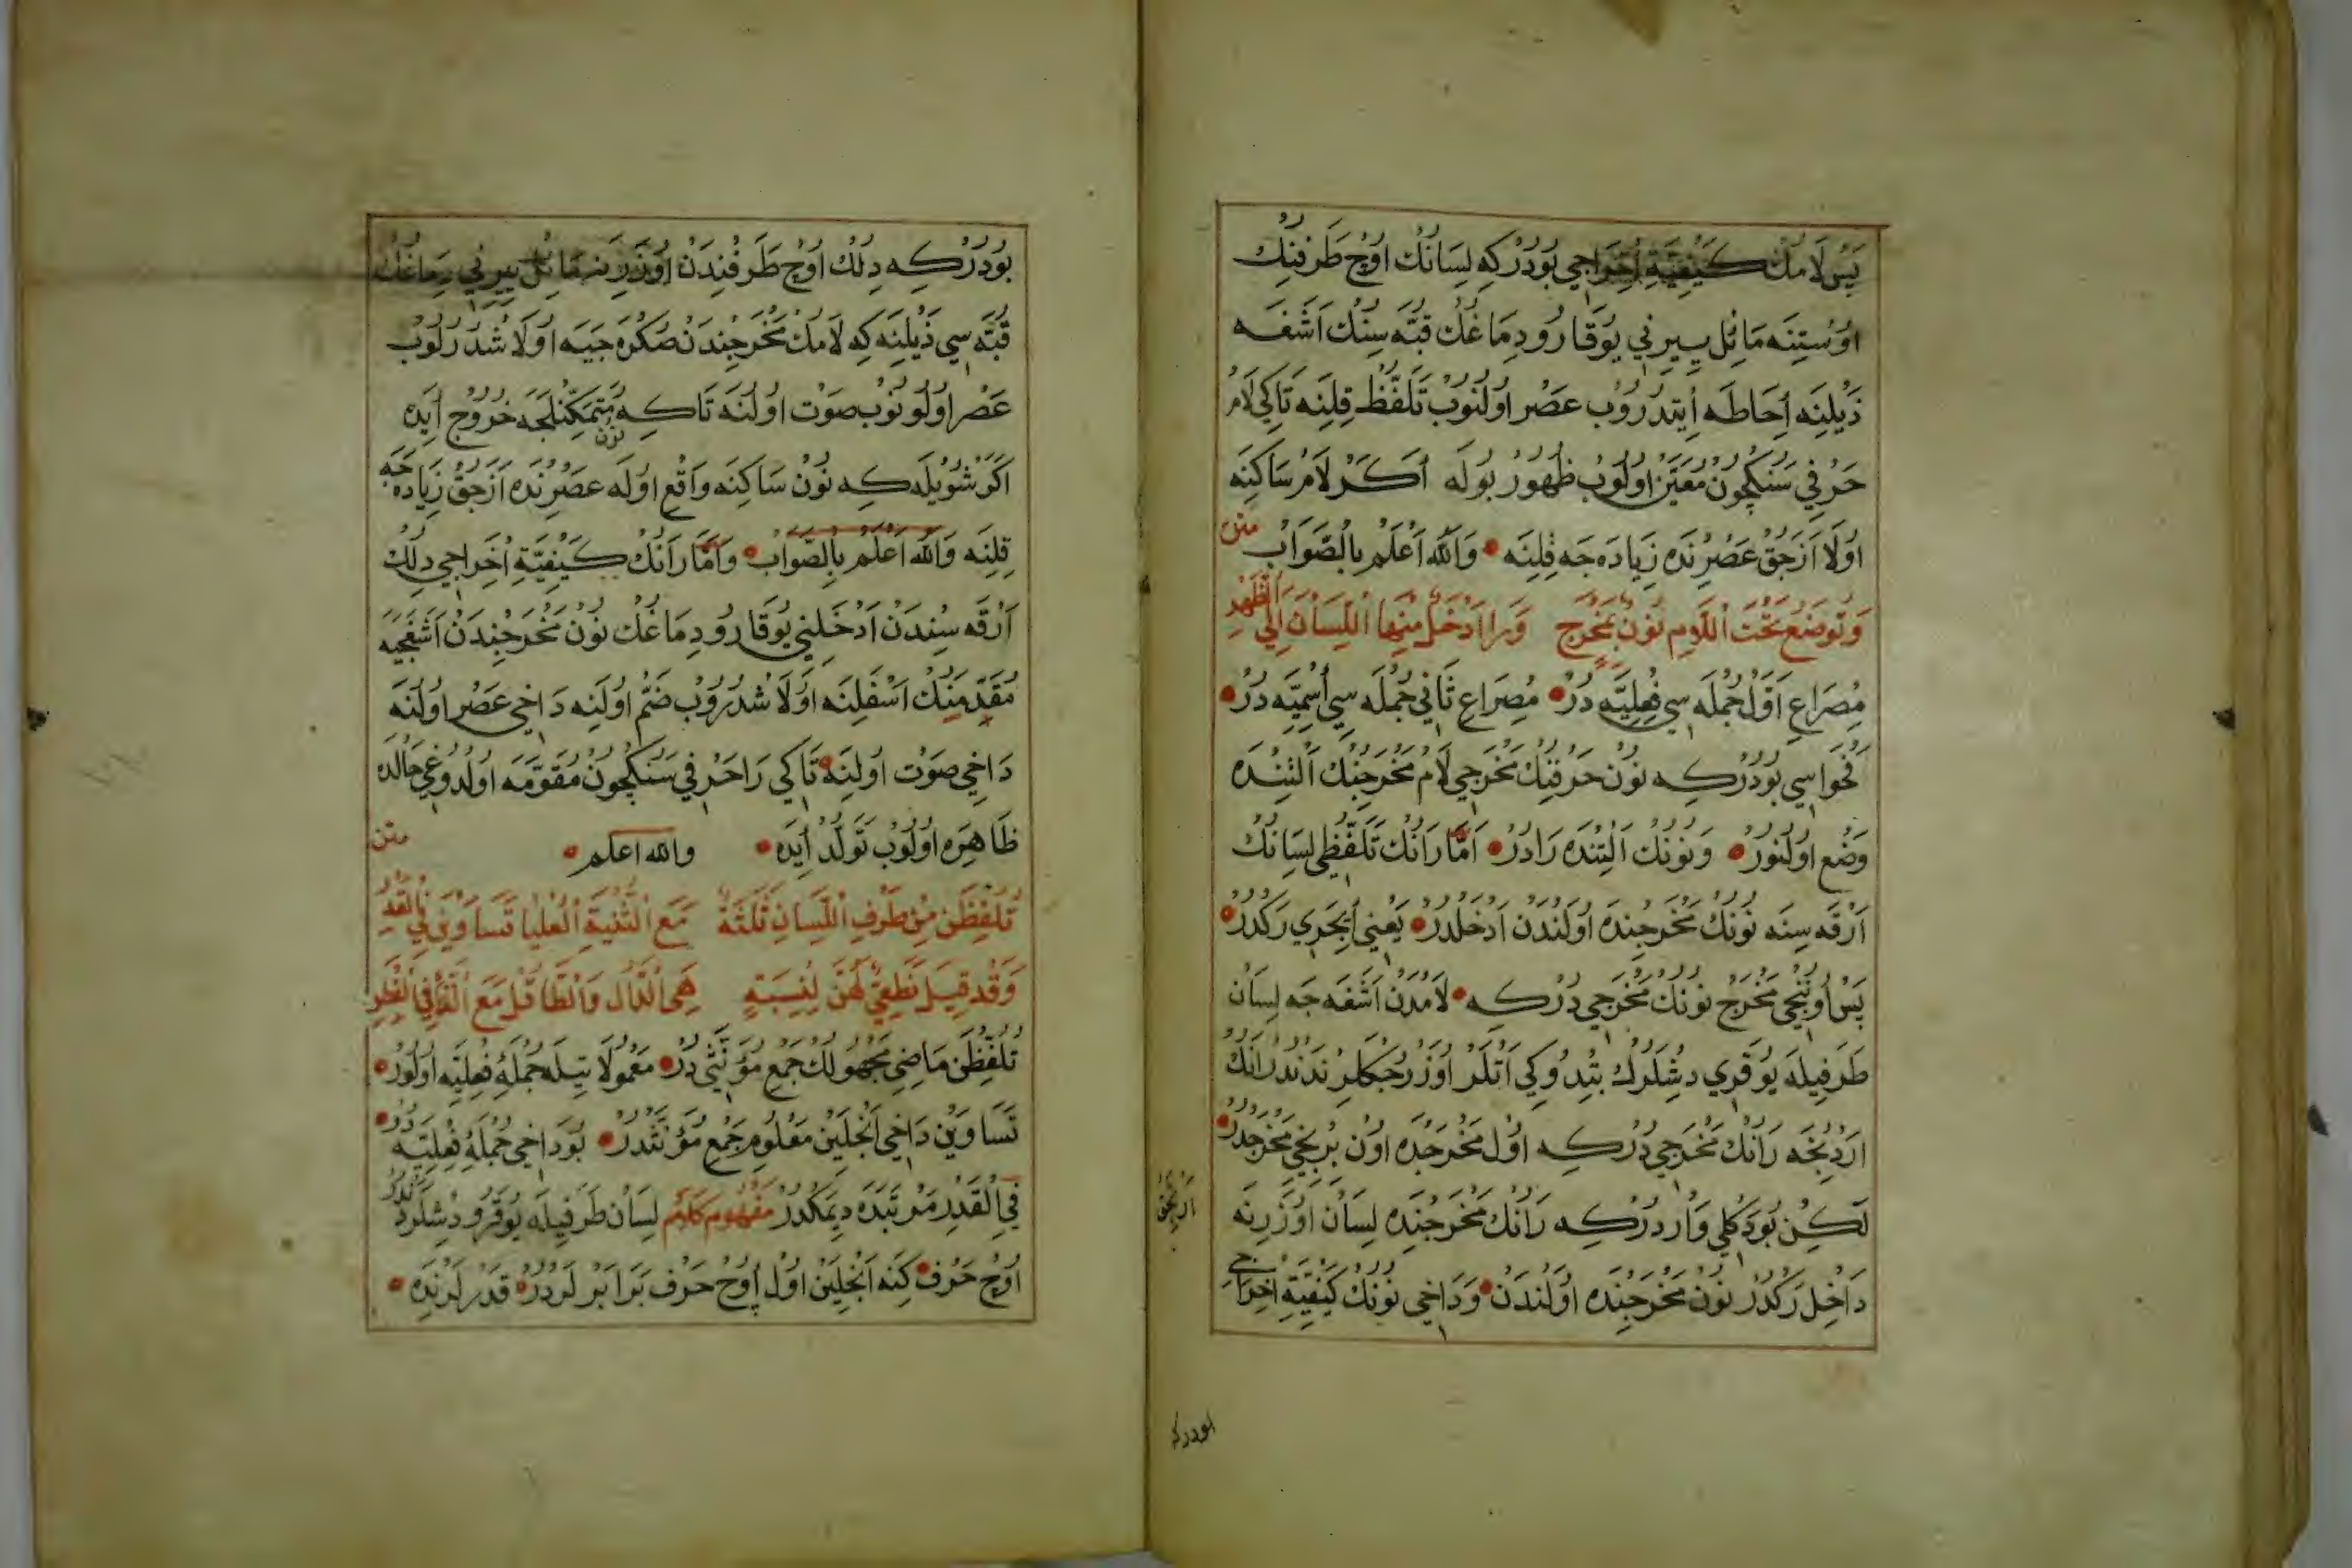 پس لامك كيفيت اخراجي بودركه لسانك اوچ طرفنك
اوستنه مائل ييرني يوقارو دماغك قبه سنك اشغه
ذيلنه احاطه ايتدروب عصر اولنوب تلفظ قلنه تاكي لام
حرفي سنكچون معين اولوب ظهور بوله اكر لام ساكنه
اولا ازجق عصرنده زياده جه قلنه والله اعلم بالصواب
متن
وتوضع تحت اللام نون بمخرج ورا ادخل منها اللسان الى الظهر
مصراع اول جمله سي فعليه در مصراع ثاني جمله سي اسميه در
فحواسي بودركه نون حرفنك مخرجي لام مخرجنك التنده
وضع اولنور ونونك التنده رادر اما رانك تلفظي لسانك
ارقه سنه نونك مخرجنده اولندن ادخلدر يعني ايجري ركدر
پس اوننجي مخرج نونك مخرجي دركه لامدن اشغه جه لسان
طرفيله يوقري دشلرك بتدوكي اتلر اوزرجكلرندندر رانك
اردنجه رانك مخرجي دركه اول مخرجده اون برنجي مخرجدر
لكن بودكلي واردركه رانك مخرجنده لسان اوزرينه
داخل ركدر نون مخرجنده اولندن وداخي نونك كيفيت اخراجي
بودركه
بودركه دلك اوچ طرفندن اوزرينه مائل ييرني دماغك
قبه سي ذيلنه كه لامك مخرجندن صكره جيه اولاشدرلوب
عصر اولونوب صوت اولنه تاكه نون متمكنلجه خروج ايده
اكر شويله كه نون ساكنه واقع اوله عصرنده ازجق زياده جه
قلنه والله اعلم بالصواب واما رانك كيفيت اخراجي دلك
ارقه سندن ادخلني يوقارو دماغك نون مخرجندن اشغجيه
مقدمنك اسفلنه اولاشدروب ضم اولنه داخي عصر اولنه
داخي صوت اولنه تاكي را حرفي سنكچون مقومه اولدوغي حالده
ظاهره اولوب تولد ايده والله اعلم
متن
تلفظن من طرف اللسان ثلثة مع الثنية العليا تساوين في القدر
وقد قيل نطعي لهن لنسبة هي الدال والطا قل مع التا في الفطر
تلفظن ماضي مجهولك جمع مؤنثي در معمولاتيله جملۀ فعليه اولور
تساوين داخي انجلين معلوم جمع مؤنثدر بو داخي جملۀ فعليه در
في القدر مرتبده ديمكدر مفهوم كلام لسان طرفيله يوقرو دشلردندر
اوچ حرف كنه انجلين اول اوچ حرف برابر لردر قدرلرنده